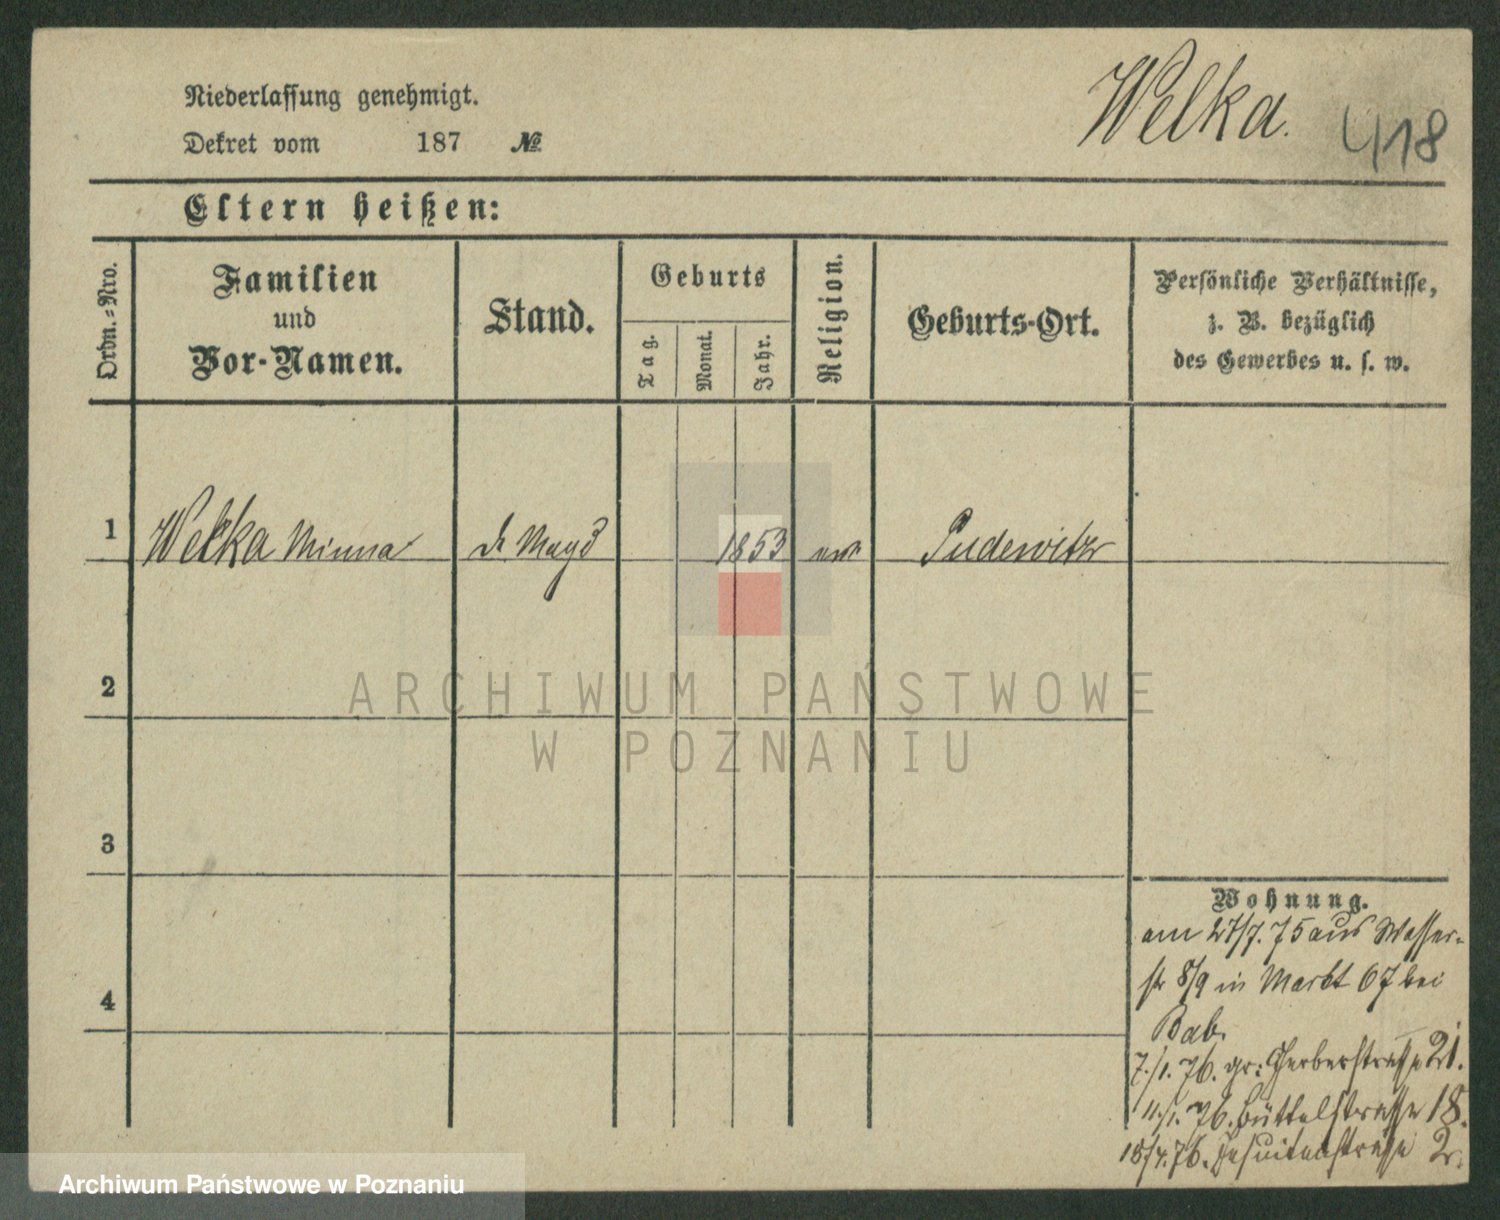 Welka.
418
Niederlassung genehmigt.
Dekret vom 187 №
Eltern heißen:
Ordn.-Nro.
Familien
und
Vor-Namen.
Stand.
Geburts
Tag.
Monat.
Jahr.
Religion.
Geburts-Ort.
Persönliche Verhältnisse,
z. B. bezüglich
des Gewerbes u. s. w.
1 Welka Minna d. Magd 1853 Pudewitz
2
3
4
Wohnung.
am 27/7. 75 aus Wasser-
str 8/9 in Markt 67 bei
Bab.
7./1. 76. gr: Gerberstrasse 21.
11./1. 76. Büttelstrasse 18.
18/4. 76. Jesuitenstrasse 2.
ARCHIWUM PAŃSTWOWE
W POZNANIU
Archiwum Państwowe w Poznaniu